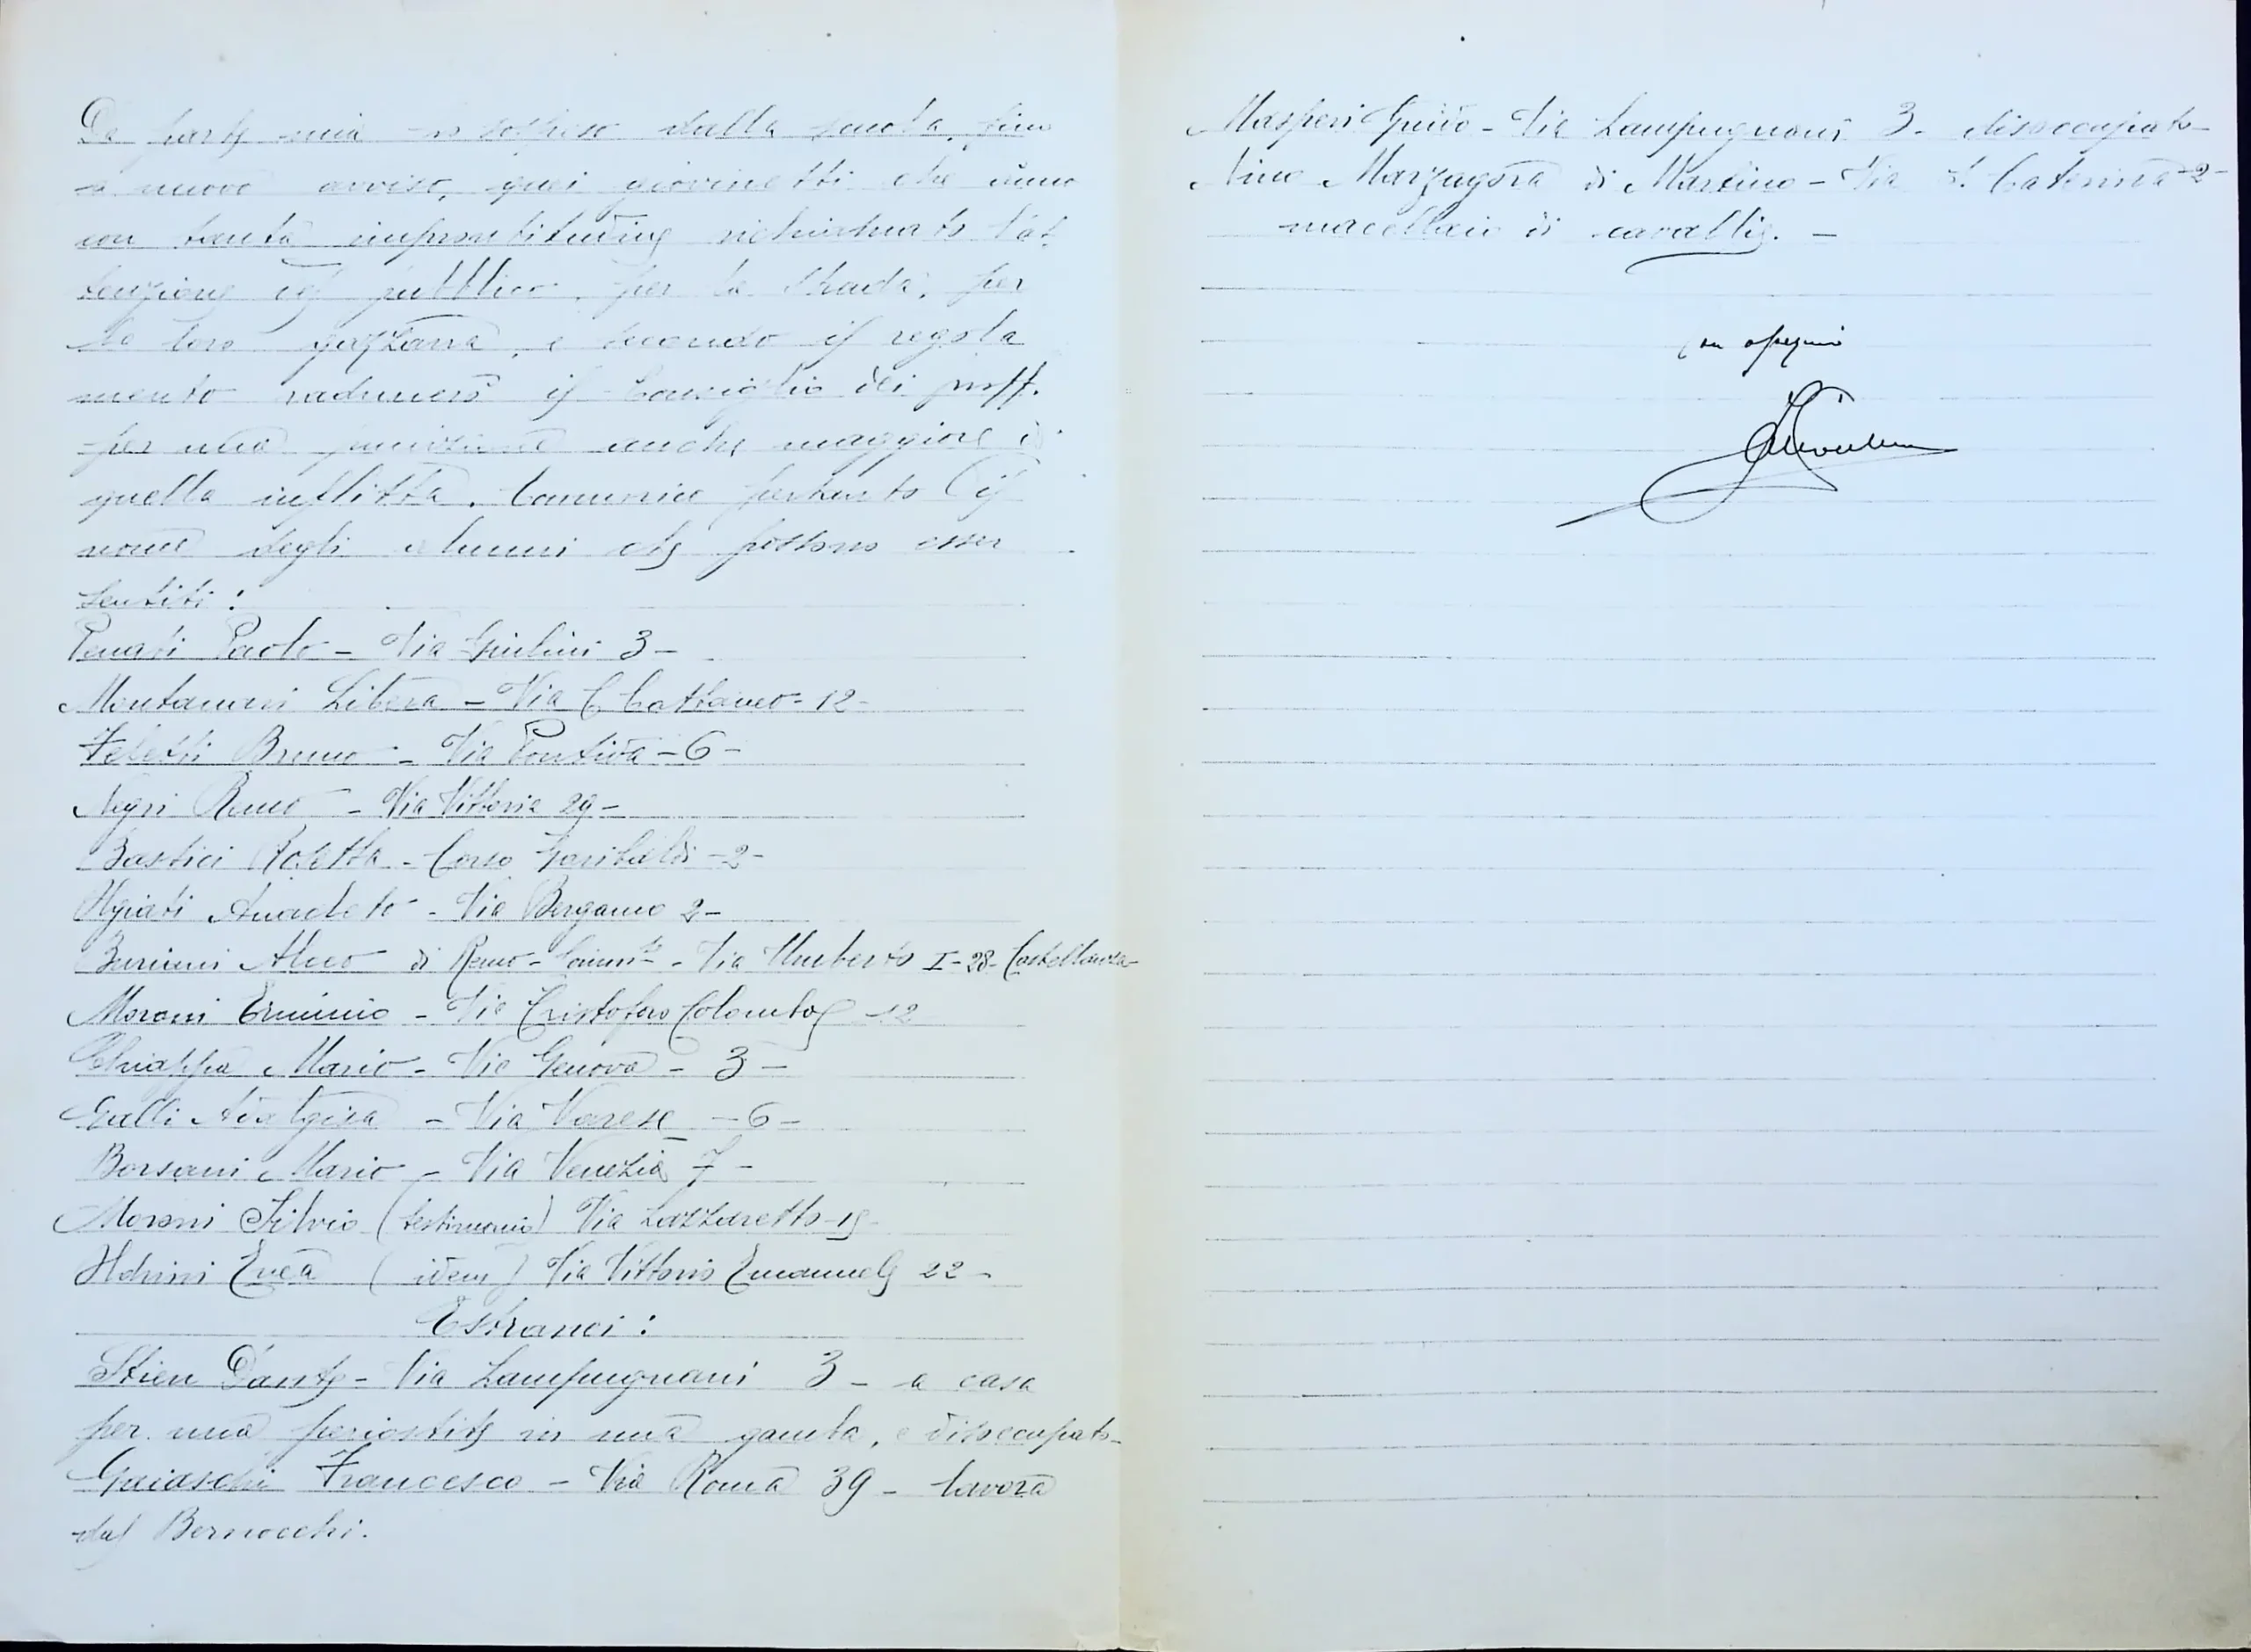 Da parte mia ho sospeso dalla scuola, fino
a nuovo avviso, quei giovinetti che ànno
con tanta improntitudine richiamato l'at
tenzione del pubblico, per la strada, per
la loro gazzarra, e secondo il regola
mento radunerò il Consiglio dei proff.
per una punizione anche maggiore di
quella inflitta. Comunico pertanto il
nome degli alunni che possono esser
sentiti:
Penati Paolo - Via Giulini 3 -
Montanari Libera - Via C. Cattaneo - 12 -
Feletti Bruno - Via Pontida - 6 -
Negri Remo - Via Vittoria 29 -
Bastici Rosetta - Corso Garibaldi - 2 -
Olgiati Anacleto - Via Bergamo 2 -
Buriani Alceo di Remo - - Via Umberto I - 28 - Castellanza -
Moroni Erminio - Via Cristoforo Colombo 12
Chiappa Mario - Via Genova - 3 -
Galli Adalgisa - Via Varese - 6 -
Borsani Mario - Via Venezia 7 -
Moroni Silvio (testimonio) Via Lazzaretto - 15 -
Enea (idem) Via Vittorio Emanuele 22 -
Estranei:
Stien Dante - Via Lampugnani 3 - a casa
per una periostite in una gamba, e disoccupato -
Gaiaschi Francesco - Via Roma 39 - lavora
dal Bernocchi.
Masperi Guido - Via Lampugnani 3 - disoccupato -
Nino Marzagora di Martino - Via S. Caterina - 2 -
macellaio di cavallie. -
Con ossequio